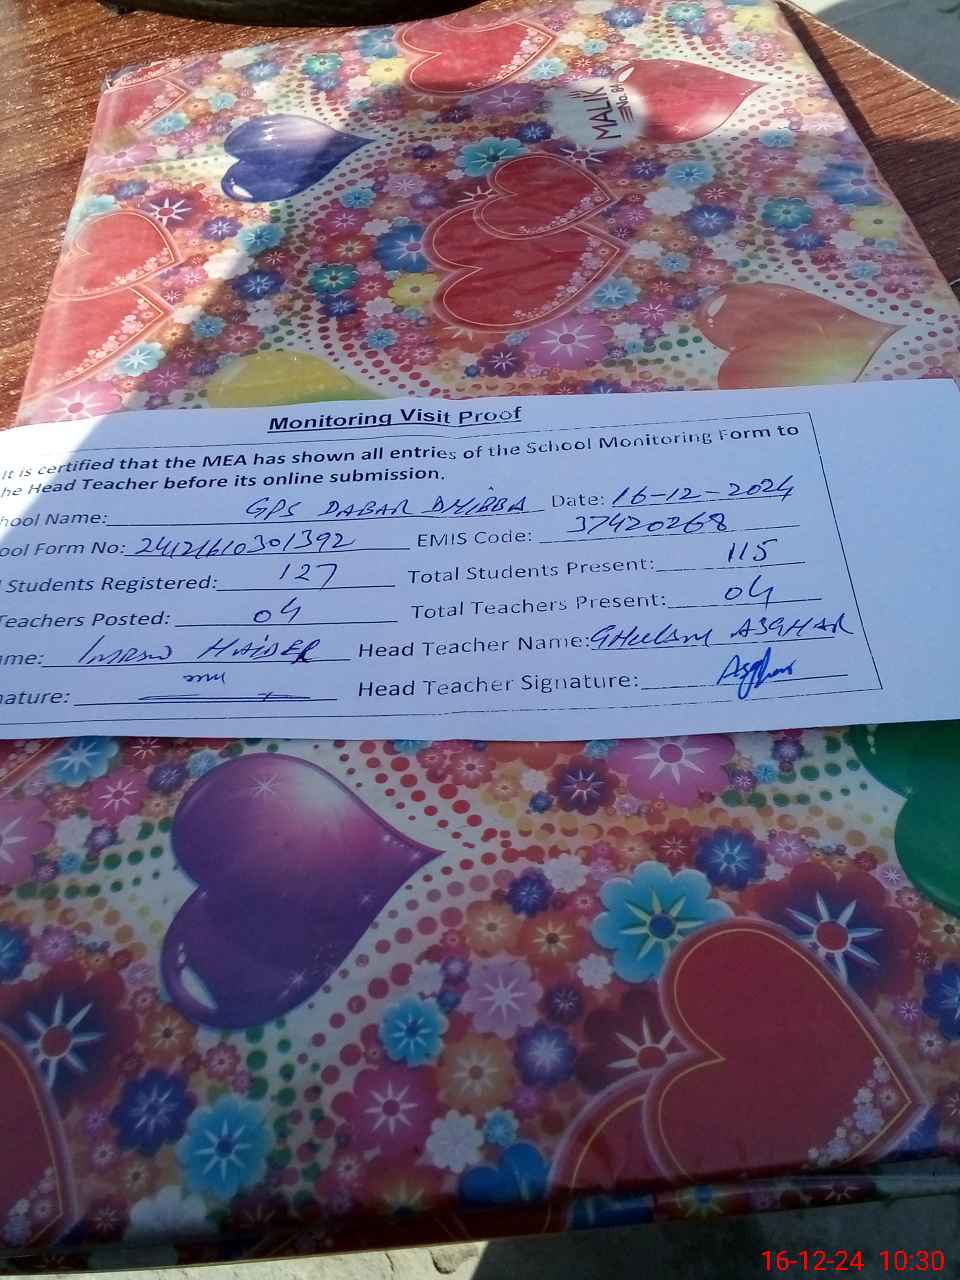 MALIK
No. 84
Monitoring Visit Proof
It is certified that the MEA has shown all entries of the School Monitoring Form to
he Head Teacher before its online submission.
hool Name: GPS DABAR DHIBBA Date: 16-12-2024
ool Form No: 24121610301392 EMIS Code: 37420268
Students Registered: 127 Total Students Present: 115
Teachers Posted: 04 Total Teachers Present: 04
me: IMRAN HAIDER Head Teacher Name: GHULAM ASGHAR
nature: Head Teacher Signature: Asghar
16-12-24 10:30